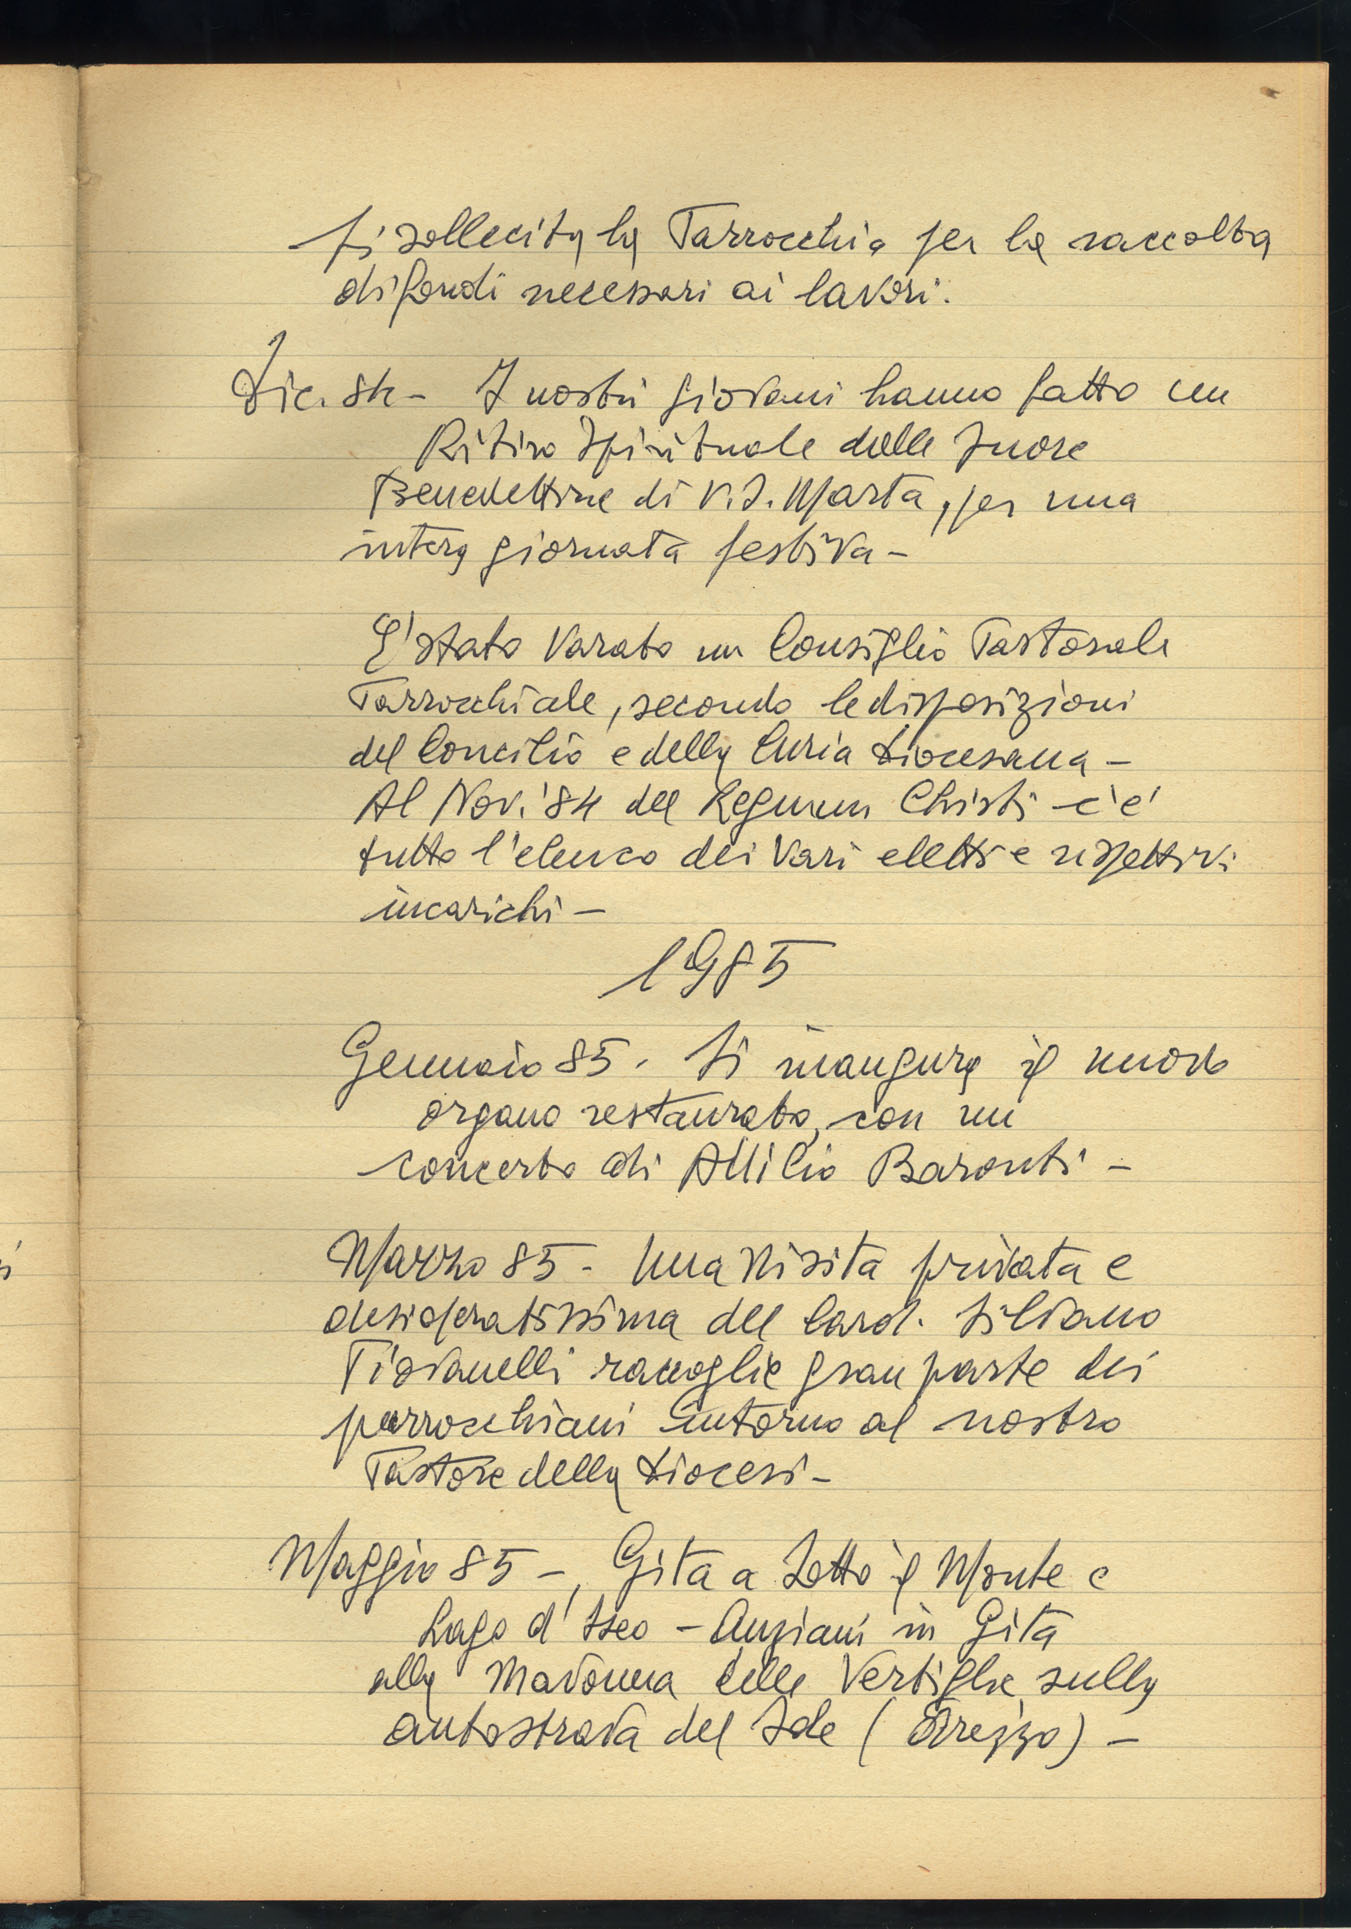 Si sollecita la Parrocchia per la raccolta
di fondi necessari ai lavori.
Dic. 84 - I nostri giovani hanno fatto un
Ritiro Spirituale dalle Suore
Benedettine di V. S. Marta, per una
intera giornata festiva -
E' stato varato un Consiglio Pastorale
Parrocchiale, secondo le disposizioni
del Concilio e della Curia Diocesana -
Al Nov. '84 del Regnum Christi c'è
tutto l'elenco dei vari eletti e rispettivi
incarichi -
1985
Gennaio 85. Si inaugura il nuovo
organo restaurato, con un
concerto di Attilio Baronti -
Marzo 85 - Una visita privata e
desideratissima del Card. Silvano
Piovanelli raccoglie gran parte dei
parrocchiani intorno al nostro
Pastore della Diocesi -
Maggio 85 -, Gita a Sotto il Monte e
Lago d'Iseo - Anziani in Gita
alla Madonna delle Vertighe sulla
autostrada del Sole (Arezzo) -